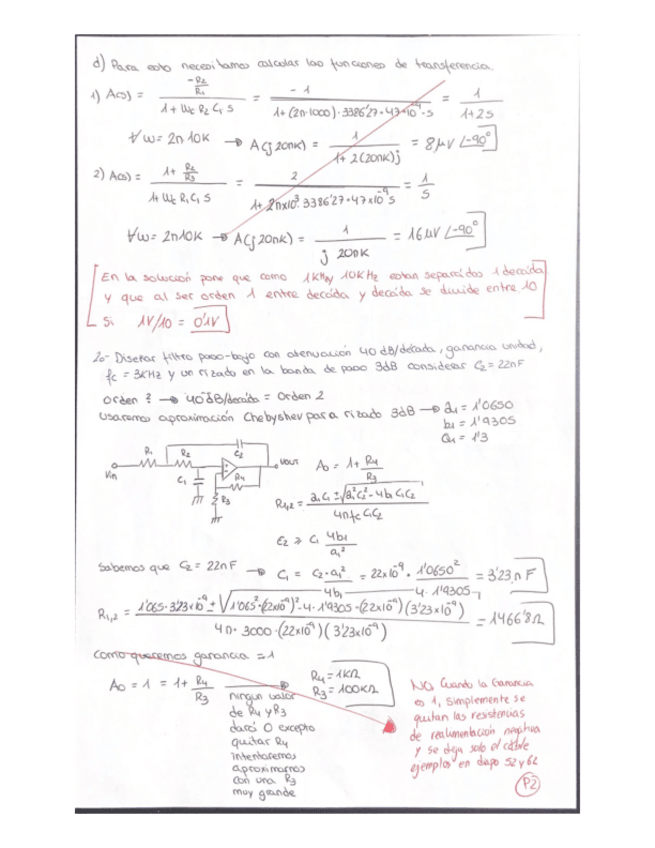 d) Para esto necesitamos calcular las funciones de transferencia.
1) A(s) = (-R2/R1) / (1 + Wc R2 C1 S) = -1 / (1+(2π·1000)·3386'27·47·10⁻⁹·s) = 1 / (1+2s)
∀ω = 2π10K → A(j20πK) = 1 / (1+2(20πK)j) = 8μV ∠-90°
2) A(s) = (1 + R2/R3) / (1+ Wc R1 C1 S) = 2 / (1+ 2πx10³·3386'27·47x10⁻⁹ s) = 1/s
∀ω = 2π10K → A(j20πK) = 1 / (j 20πK) = 16μV ∠-90°
En la solución pone que como 1KHz y 10KHz estan separados 1 decada
y que al ser orden 1 entre decada y decada se divide entre 10
Si 1V/10 = 0'1V
2o- Diseñar filtro paso-bajo con atenuación 40 dB/decada, ganancia unidad,
fc = 3KHz y un rizado en la banda de paso 3dB considerar C2 = 22nF
orden ? → 40dB/decada = Orden 2
Usaremos aproximación Chebyshev para rizado 3dB → a1 = 1'0650
b1 = 1'9305
Q1 = 1'3
Vin R1 R2 C1 C2 R4 R3 VOUT
A0 = 1 + R4/R3
R1,2 = (a1 C1 ± √(a1² C2² - 4b1 C1 C2)) / (4πfc C1 C2)
C2 ≥ C1 4b1/a1²
Sabemos que C2 = 22nF → C1 = C2·a1² / 4b1 = 22x10⁻⁹ · 1'0650² / 4·1'9305 = 3'23nF
R1,2 = (1'065·3'23x10⁻⁹ ± √(1'065²·(22x10⁻⁹)² - 4·1'9305·(22x10⁻⁹)(3'23x10⁻⁹))) / (4π·3000·(22x10⁻⁹)(3'23x10⁻⁹)) = 1466'8Ω
Como queremos ganancia = 1
A0 = 1 = 1 + R4/R3 → R4 = 1KΩ
R3 = 100KΩ
ningun valor
de R4 y R3
dará 0 excepto
quitar R4
intentaremos
aproximarnos
con una R3
muy grande
NO. Cuando la Ganancia
es 1, simplemente se
quitan las resistencias
de realimentación negativa
y se deja solo el cable
ejemplos en diapo 52 y 62
P2